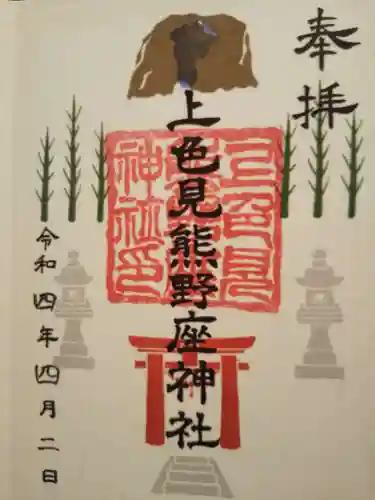 奉拝
上色見熊野座神社
上色見熊野座神社印
令和四年四月二日